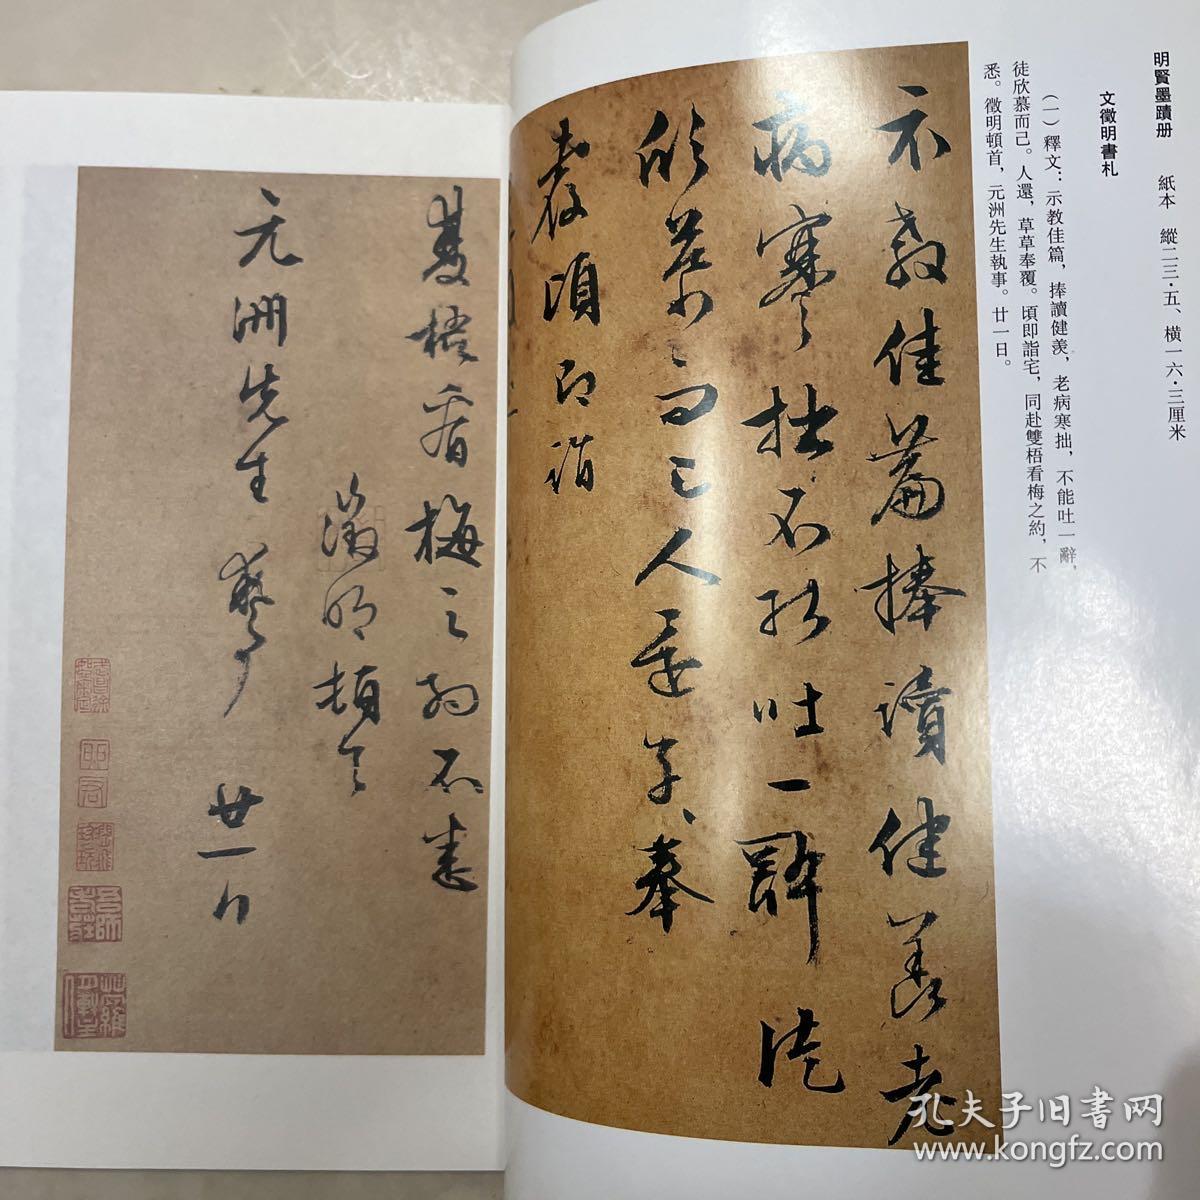 明賢墨蹟册　紙本　縱二三·五、橫一六·三厘米
文徵明書札
（一）釋文：示教佳篇，捧讀健羨，老病寒拙，不能吐一辭，
徒欣慕而己。人還，草草奉覆。頃即詣宅，同赴雙梧看梅之約，不
悉。徵明頓首，元洲先生執事。廿一日。
示教佳篇捧讀健羨老
病寒拙不能吐一辭徒
欣慕而已人還草草奉
覆頃即詣
雙梧看梅之約不悉
徵明頓首
元洲先生執事　廿一日
孔夫子旧书网
www.kongfz.com